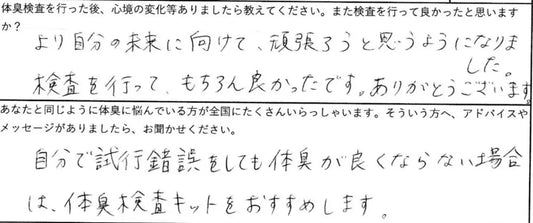 体臭検査を行った後、心境の変化等ありましたら教えてください。また検査を行って良かったと思います
か?
より自分の未来に向けて、頑張ろうと思うようになりま
した。
検査を行って、もちろん良かったです。ありがとうございます。
あなたと同じように体臭に悩んでいる方が全国にたくさんいらっしゃいます。そういう方へ、アドバイスや
メッセージがありましたら、お聞かせください。
自分で試行錯誤をしても体臭が良くならない場合
は、体臭検査キットをおすすめします。